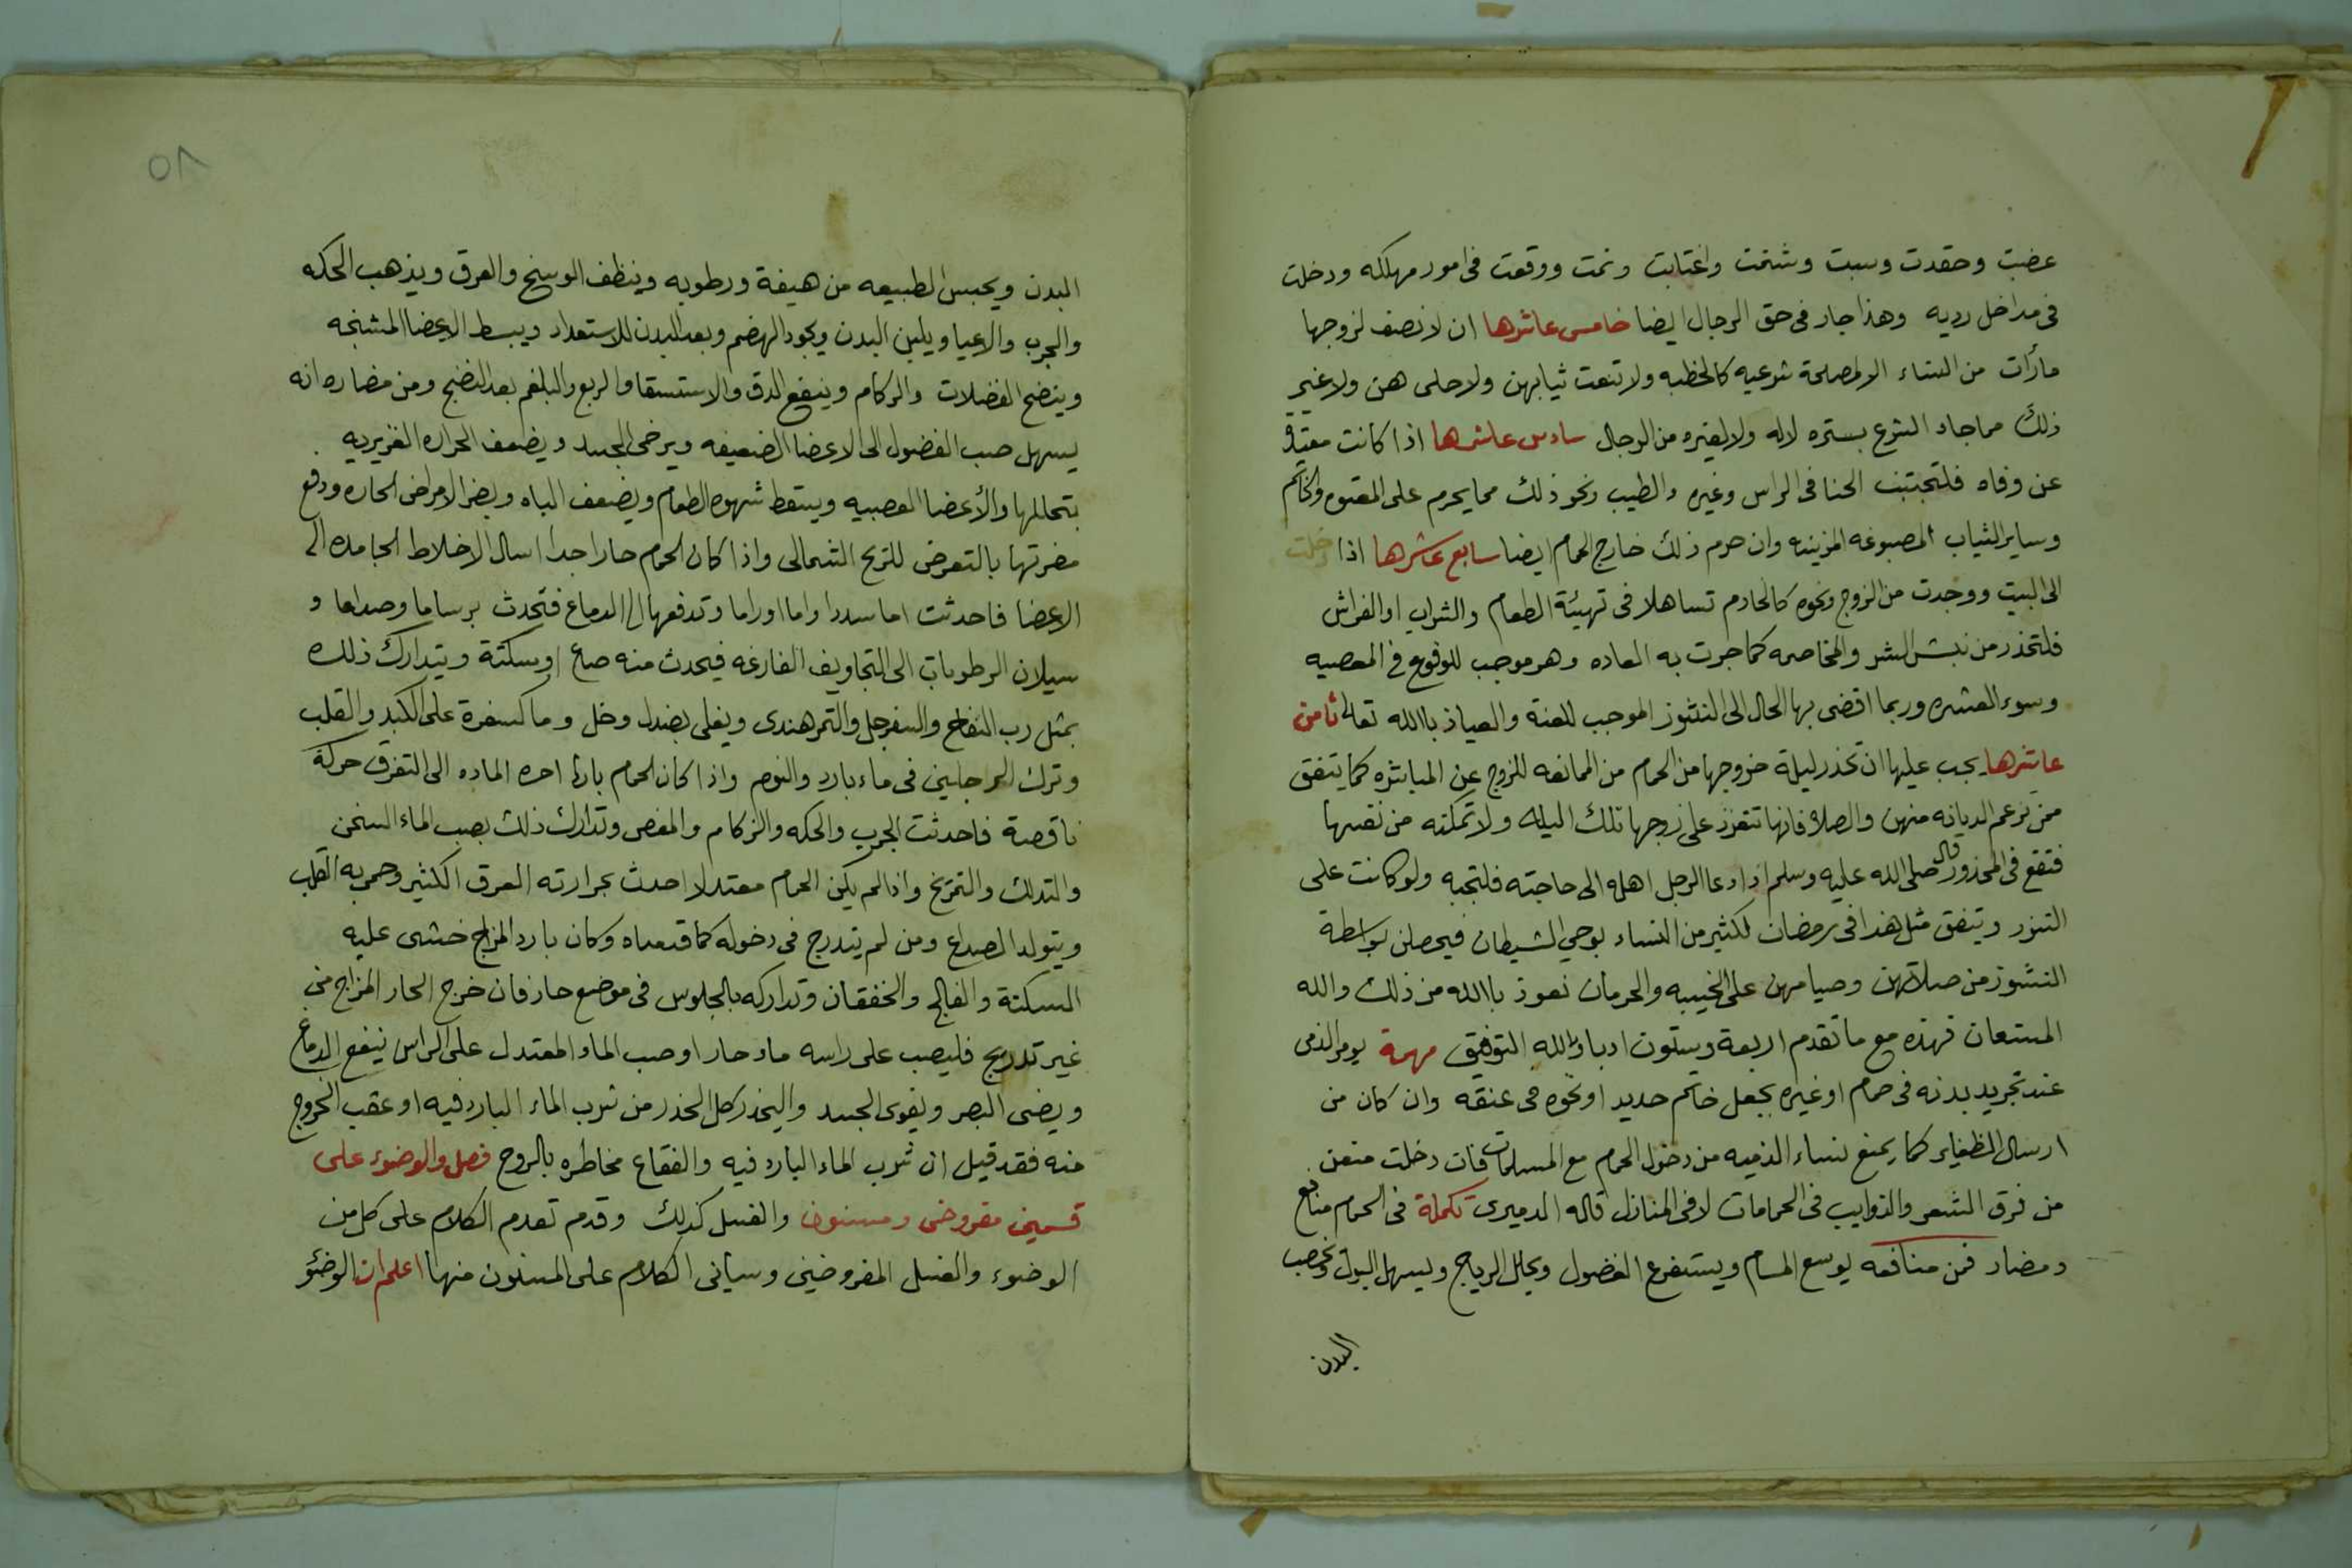 عضبت وحقدت وسبت وشتمت واغتابت ونمت ووقعت فى امور مهلكه ودخلت
فى مداخل رديه وهذا جار فى حق الرجال ايضا خامس عاشرها ان لا تصف لزوجها
مارأت من النساء الا لمصلحة شرعيه كالخطبه ولا تنعت ثيابهن ولا حلى هن ولا غير
ذلك مما جاء الشرع بستره لا له ولا لغيره من الرجال سادس عاشرها اذا كانت معتدة
عن وفاه فلتجتنب الحنا فى الراس وغيره والطيب ونحو ذلك مما يحرم على المعتده والخاتم
وساير الثياب المصبوغه المزينه وان حرم ذلك خارج الحمام ايضا سابع عاشرها اذا دخلت
الى البيت ووجدت من الزوج ونحوه كالخادم تساهلا فى تهيئة الطعام والشراب او الفراش
فلتحذر من نبش الشر والمخاصمه كما جرت به العاده وهو موجب للوقوع فى المعصيه
وسوء العشره وربما افضى بها الحال الى النشوز الموجب للعنة والعياذ باالله تعالى ثامن
عاشرها يجب عليها ان تحذر ليلة خروجها من الحمام من الممانعه للزوج عن المباشره كما يتفق
ممن تزعم الديانه منهن والصلاه فانها تتعزز على زوجها تلك الليله ولا تمكنه من نفسها
فتقع فى المحذور قال صلى الله عليه وسلم اذا دعا الرجل اهله الى حاجته فلتجبه ولو كانت على
التنور ويتفق مثل هذا فى رمضان لكثير من النساء بوحي الشيطان فيحصلن بواسطة
النشوز من صلاتهن وصيامهن على الخيبه والحرمان نعوذ باالله من ذلك والله
المستعان فهذه مع ما تقدم اربعة وستون ادبا والله التوفيق مهمة يومر الذمى
عند تجريد بدنه فى حمام او غيره بجعل خاتم حديد او نحوه فى عنقه وان كان من
ارسال الظفاير كما يمنع نساء الذميه من دخول الحمام مع المسلمات فان دخلت منعن
من فرق الشعر والذوايب فى الحمامات لا فى المنازل قاله الدميرى تكملة فى الحمام منافع
ومضار فمن منافعه يوسع المسام ويستفرغ الفضول ويحلل الرياح ويسهل البول ويخصب
البدن
٥٨
البدن ويحبس الطبيعه من هيضة ورطوبه وينظف الوسخ والعرق ويذهب الحكه
والجرب والاعيا ويلين البدن ويجود الهضم وبعد البدن للاستعداد ويبسط الاعضا المشنجه
وينضج الفضلات والزكام وينفع الدق والاستسقا والربع والبلغم بعد النضج ومن مضاره انه
يسهل صب الفضول الى الاعضا الضعيفه ويرخى الجسد ويضعف الحراره الغزيريه
بتحاللها والأعضا العصبيه ويسقط شهوه الطعام ويضعف الباه ويضر الامراض الحاره ودفع
مضرتها بالتعرض للريح الشمالى واذا كان الحمام حارا جدا اسال الاخلاط الجامده الى
الاعضا فاحدثت اما سددا واما اوراما وتدفعها الى الدماغ فتحدث برساما وصداعا و
سيلان الرطوبات الى التجاويف الفارغه فيحدث منه صاع اوسكتة ويتدارك ذلك
بمثل رب التفاح والسفرجل والتمرهندى ويغلى بصندل وخل وما كسفرة على الكبد والقلب
وترك الرجلين فى ماء بارد والنوم واذا كان الحمام باردا احره الماده الى التفرق حركة
ناقصة فاحدثت الجرب والحكه والزكام والمغص وتدارك ذلك بصب الماء السخن
والتدلك والتمرّخ واذا لم يكن الحمام معتدلا احدث بحرارته العرق الكثير وحمى به القلب
ويتولد الصداع ومن لم يتدرج فى دخوله كما قدمناه وكان بارد المزاج خشى عليه
السكتة والفالج والخفقان وتداركه بالجلوس فى موضع حار فان خرج الحار المزاج من
غير تدريج فليصب على راسه ماء حار او صب الماء المعتدل على الراس ينفع الدماغ
ويضى البصر ويقوى الجسد واليحذر كل الحذر من شرب الماء البارد فيه او عقب الخروج
منه فقد قيل ان شرب الماء البارد فيه والفقاع مخاطره بالروح فصل والوضوء على
قسمين مفروض ومسنون والغسل كذلك وقدم تعدم الكلام على كل من
الوضوء والغسل المفروضين وسياتى الكلام على المسنون منهما اعلم ان الوضوء